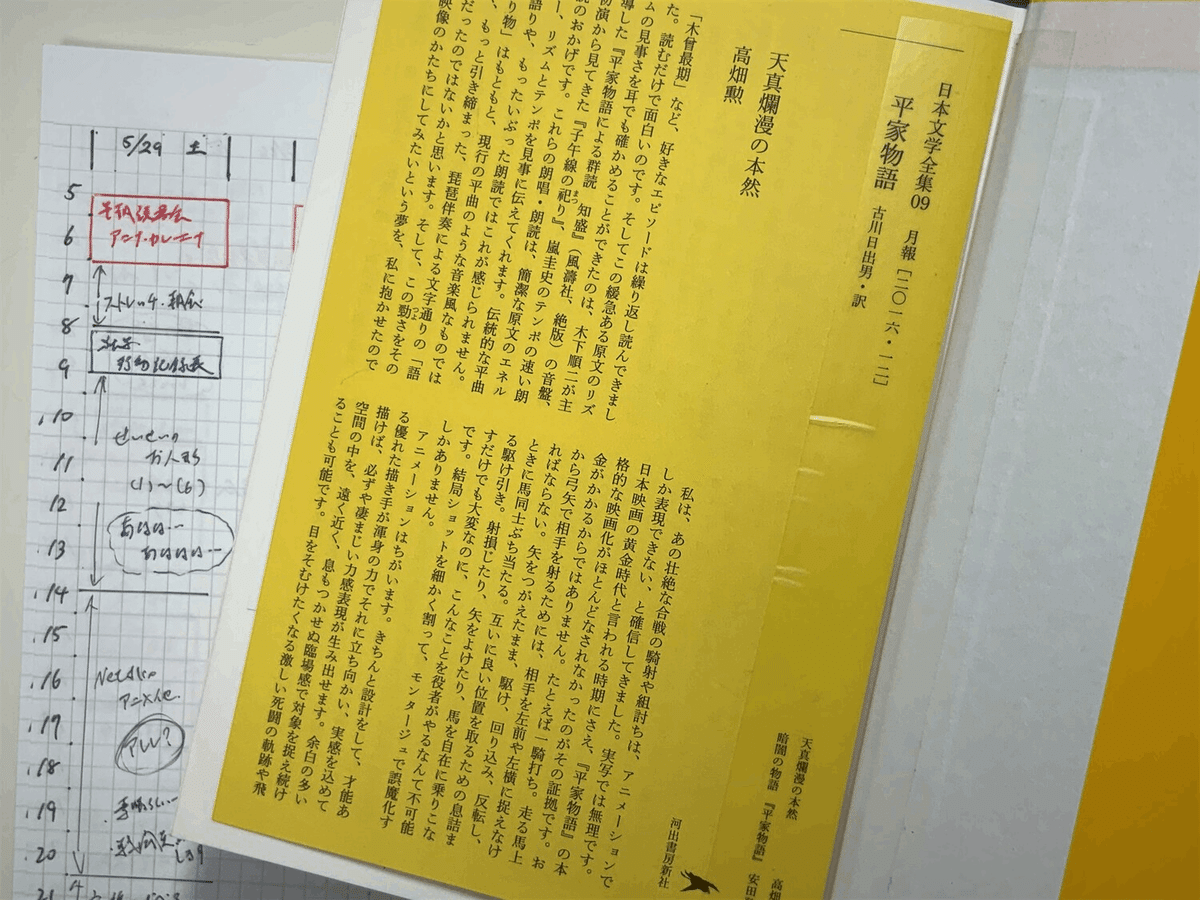 日本文学全集09 月報 [二〇一六・一二]
平家物語 古川日出男・訳
天真爛漫の本然
高畑勲
「木曾最期」など、好きなエピソードは繰り返し読んできまし
た。読むだけで面白いのです。そしてこの緩急ある原文のリズ
ムの見事さを耳でも確かめることができたのは、木下順二が主
導した『平家物語による群読 知盛』（風濤社、絶版）の音盤、
初演から見てきた『子午線の祀り』、嵐圭史のテンポの速い朗
読のおかげです。これらの朗唱・朗読は、簡潔な原文のエネル
ー、リズムとテンポを見事に伝えてくれます。伝統的な平曲
語りや、もったいぶった朗読ではこれが感じられません。
り物」はもともと、現行の平曲のような音楽風なものでは
、もっと引き締まった、琵琶伴奏による文字通りの「語
だったのではないかと思います。そして、この勁さをその
映像のかたちにしてみたいという夢を、私に抱かせたので
まつ
つよ
私は、あの壮絶な合戦の騎射や組討ちは、アニメーションで
しか表現できない、と確信してきました。実写では無理です。
日本映画の黄金時代と言われる時期にさえ、『平家物語』の本
格的な映画化がほとんどなされなかったのがその証拠です。お
金がかかるからではありません。たとえば一騎打ち。走る馬上
から弓矢で相手を射るためには、相手を左前や左横に捉えなけ
ればならない。矢をつがえたまま、駆け、回り込み、反転し、
ときに馬同士ぶち当たる。互いに良い位置を取るための息詰ま
る駆け引き。射損じたり、矢をよけたり、馬を自在に乗りこな
すだけでも大変なのに、こんなことを役者がやるなんて不可能
です。結局ショットを細かく割って、モンタージュで誤魔化す
しかありません。
アニメーションはちがいます。きちんと設計をして、才能あ
る優れた描き手が渾身の力でそれに立ち向かい、実感を込めて
描けば、必ずや凄まじい力感表現が生み出せます。余白の多い
空間の中を、遠く近く、息もつかせぬ臨場感で対象を捉え続け
ることも可能です。目をそむけたくなる激しい死闘の軌跡や飛
天真爛漫の本然 高畑
暗闇の物語 『平家物語』 安田
河出書房新社
5/29 土
5
6
アンナ・カレーニナ
7
ストレッチ・朝食
8
9
10
11
(1)〜(6)
12
あはは…
13
あははは…
14
15
16
アニメ化
17
アレレ?
18
19
20
21